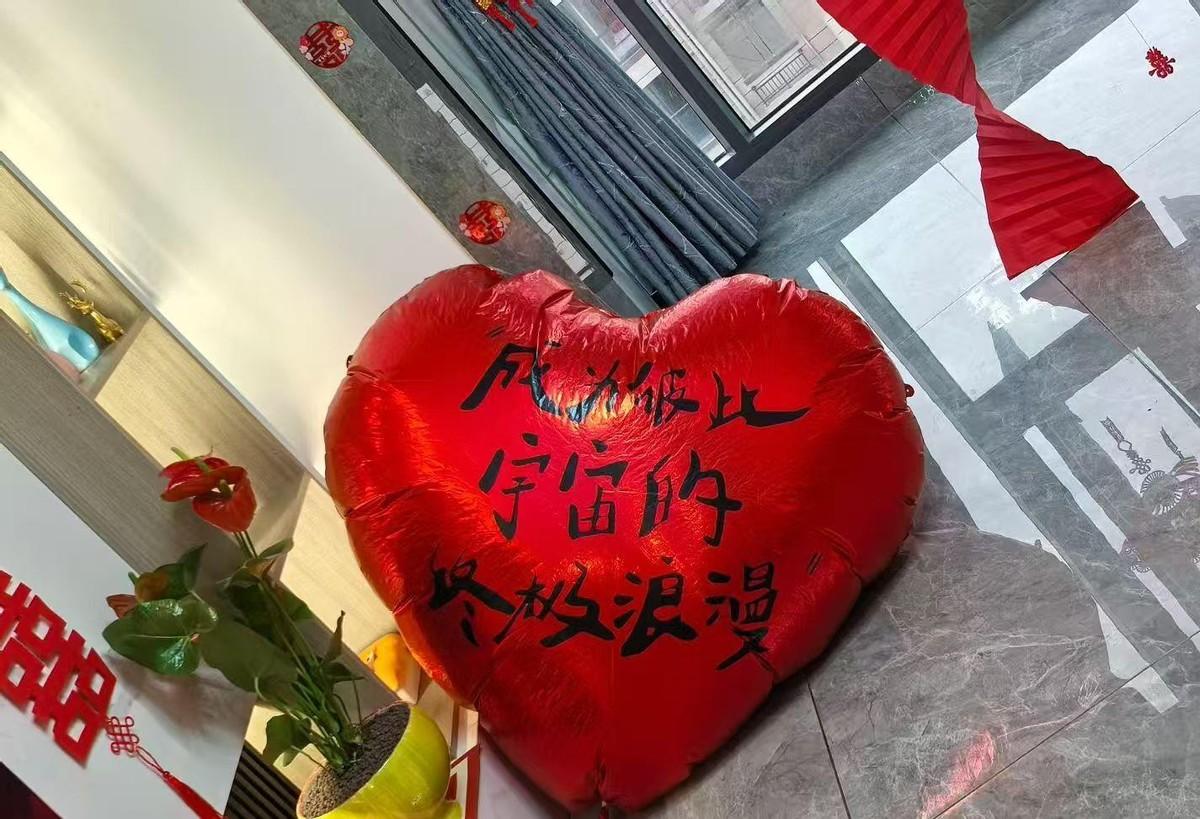 "成为彼此
宇宙的
终极浪漫"
囍
囍
囍
囍